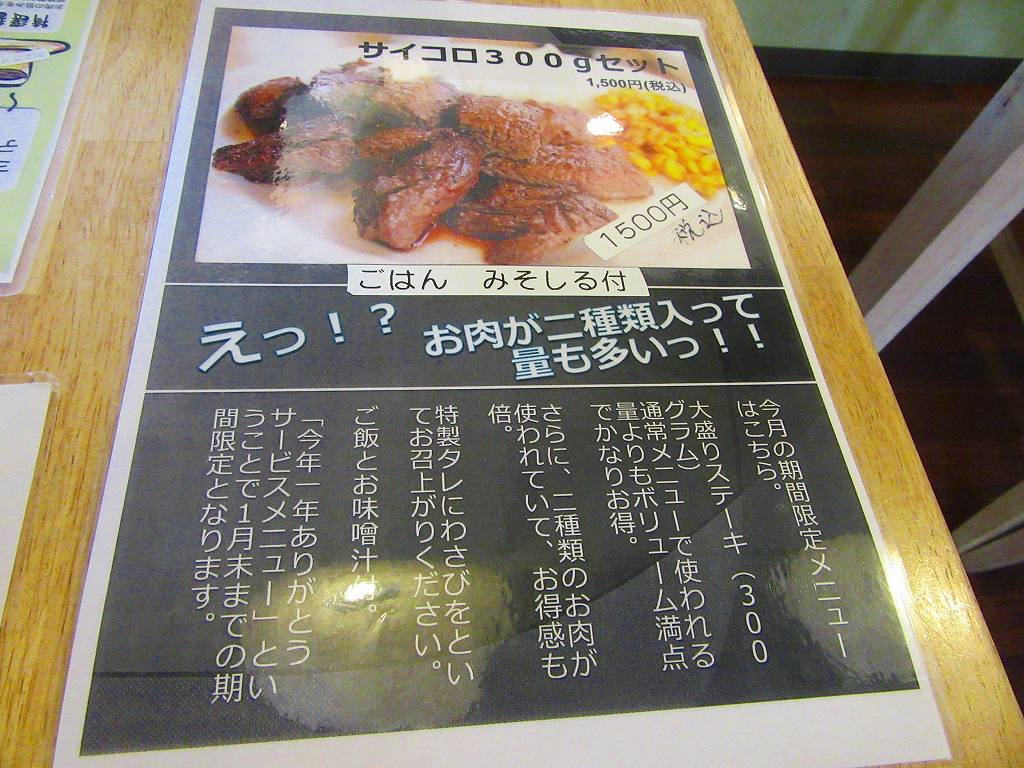 サイコロ300gセット
1,500円(税込)
1500円
税込
ごはん　みそしる付
えっ！？
お肉が二種類入って
量も多いっ！！
今月の期間限定メニュー
はこちら。
大盛りステーキ（300
グラム）
通常メニューで使われる
量よりもボリューム満点
でかなりお得。
さらに、二種類のお肉が
使われていて、お得感も
倍。
特製タレにわさびをとい
てお召上がりください。
ご飯とお味噌汁付。
「今年一年ありがとう
サービスメニュー」とい
うことで1月末までの期
間限定となります。